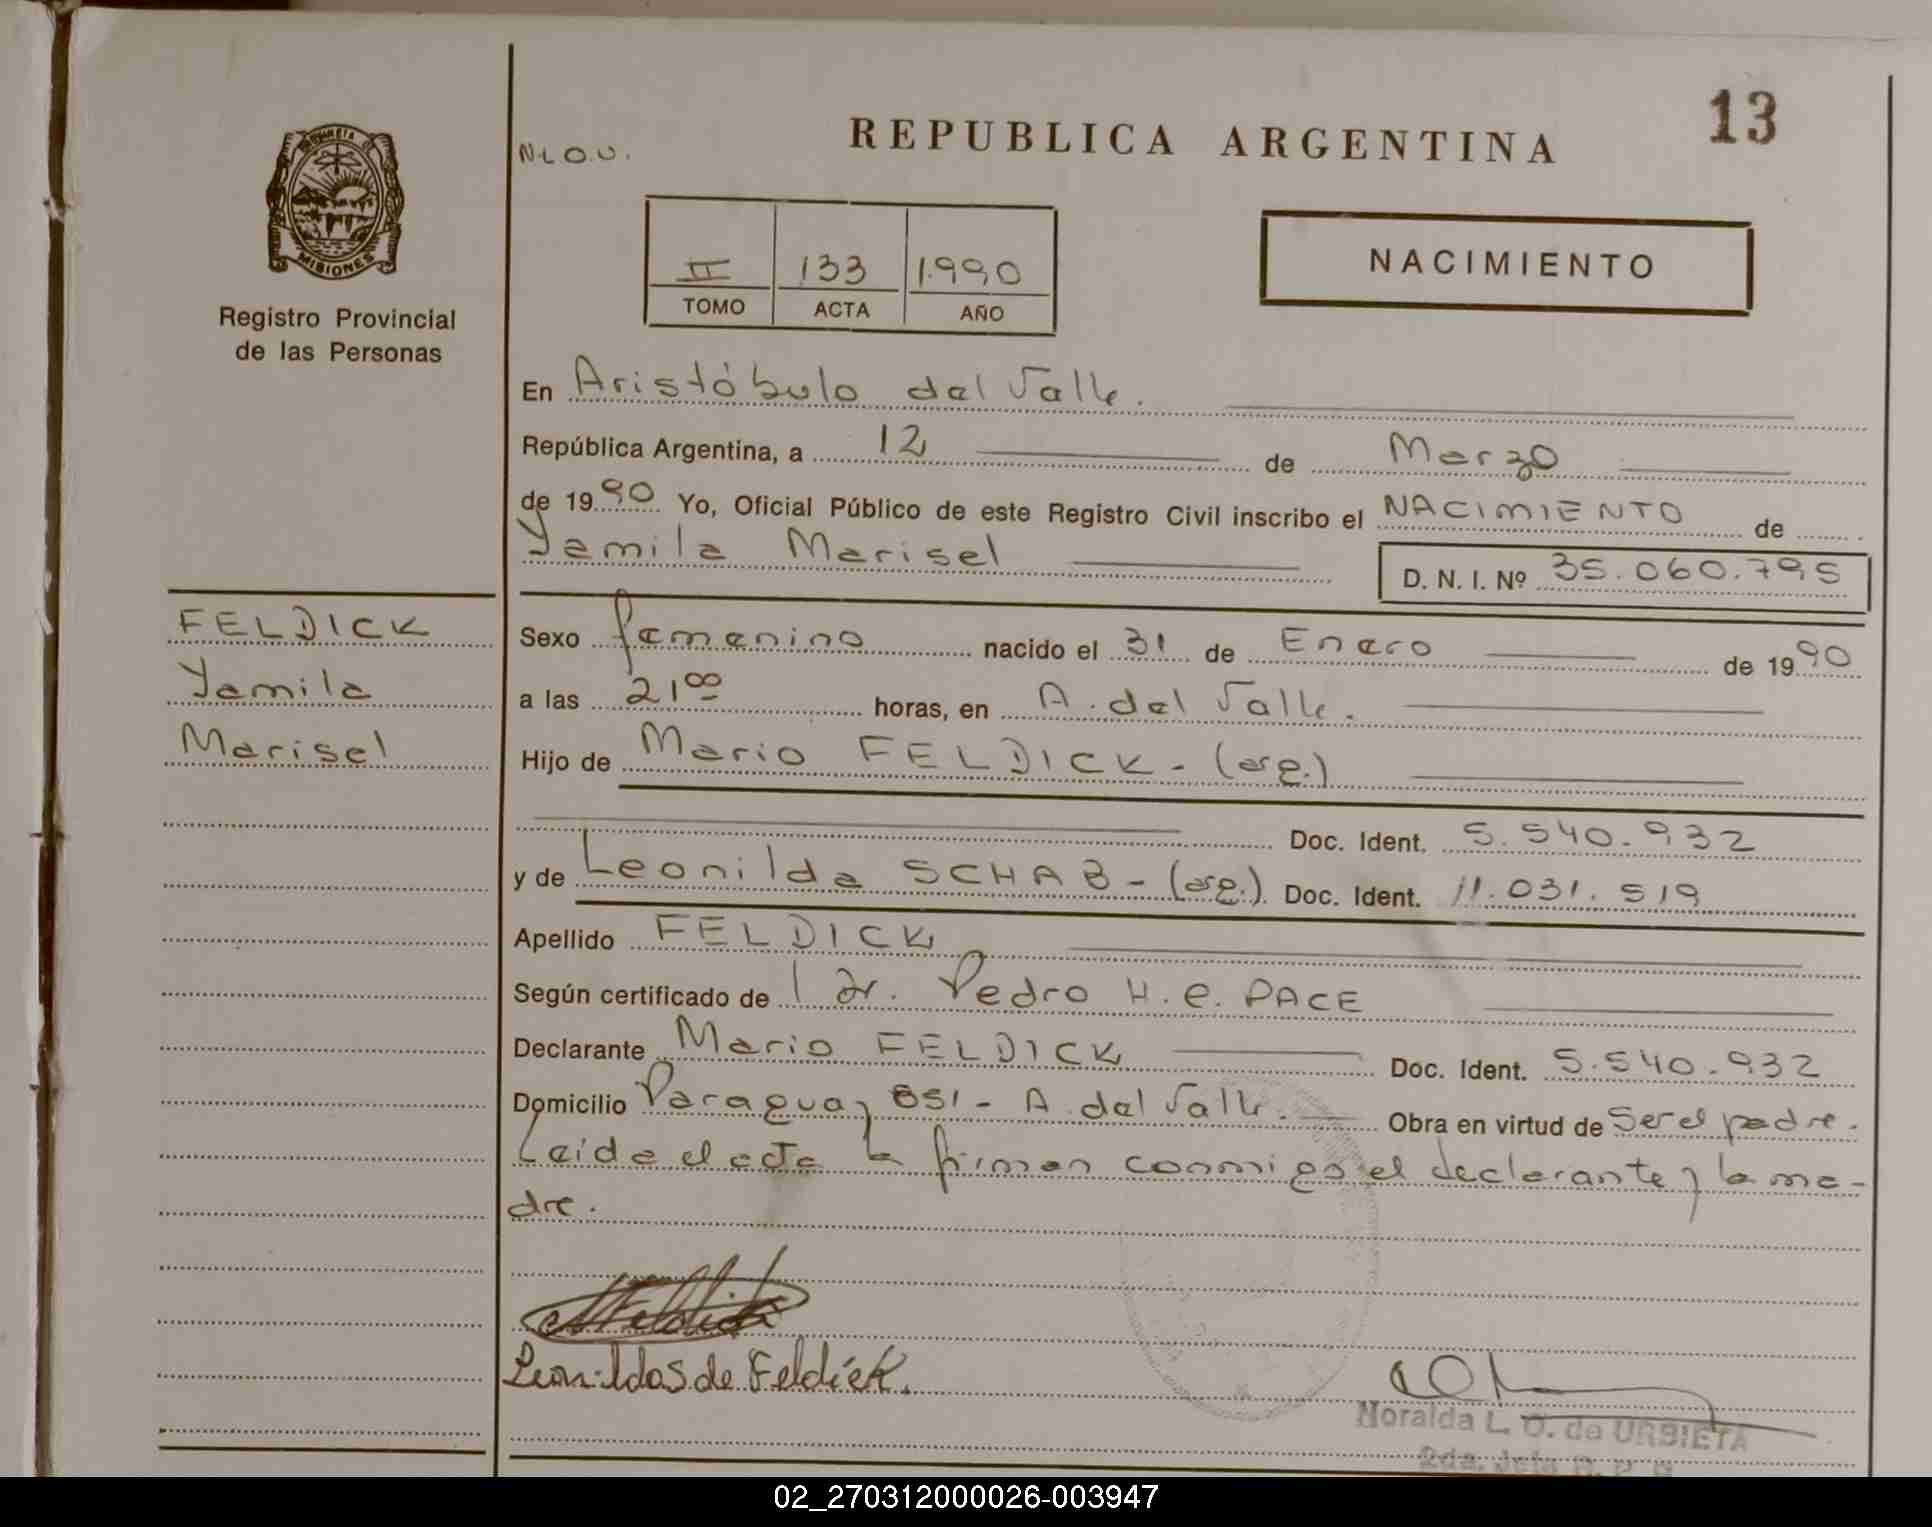 13
REPUBLICA ARGENTINA
N.L.O.U.
MISIONES
Registro Provincial
de las Personas
II 133 1.990
TOMO ACTA AÑO
NACIMIENTO
En Aristóbulo del Valle.
República Argentina, a 12 de Marzo
de 1990 Yo, Oficial Público de este Registro Civil inscribo el NACIMIENTO de
Yamila Marisel
D. N. I. Nº 35.060.795
FELDICK
Yamila
Marisel
Sexo femenino nacido el 31 de Enero de 1990
a las 21 00 horas, en A. del Valle.
Hijo de Mario FELDICK - (arg.)
Doc. Ident. 5.540.932
y de Leonilda SCHAB - (arg.) Doc. Ident. 11.031.519
Apellido FELDICK
Según certificado de Dr. Pedro H. e. PACE
Declarante Mario FELDICK Doc. Ident. 5.540.932
Domicilio Paraguay 851 - A. del Valle. Obra en virtud de Ser el padre.
Leida el acta la firman conmigo el declarante y la ma-
dre.
MFeldick
Leonilda S de Feldick.
Noralda L. O. de URBIETA
2da. Jefa R. P. P.
02_270312000026-003947